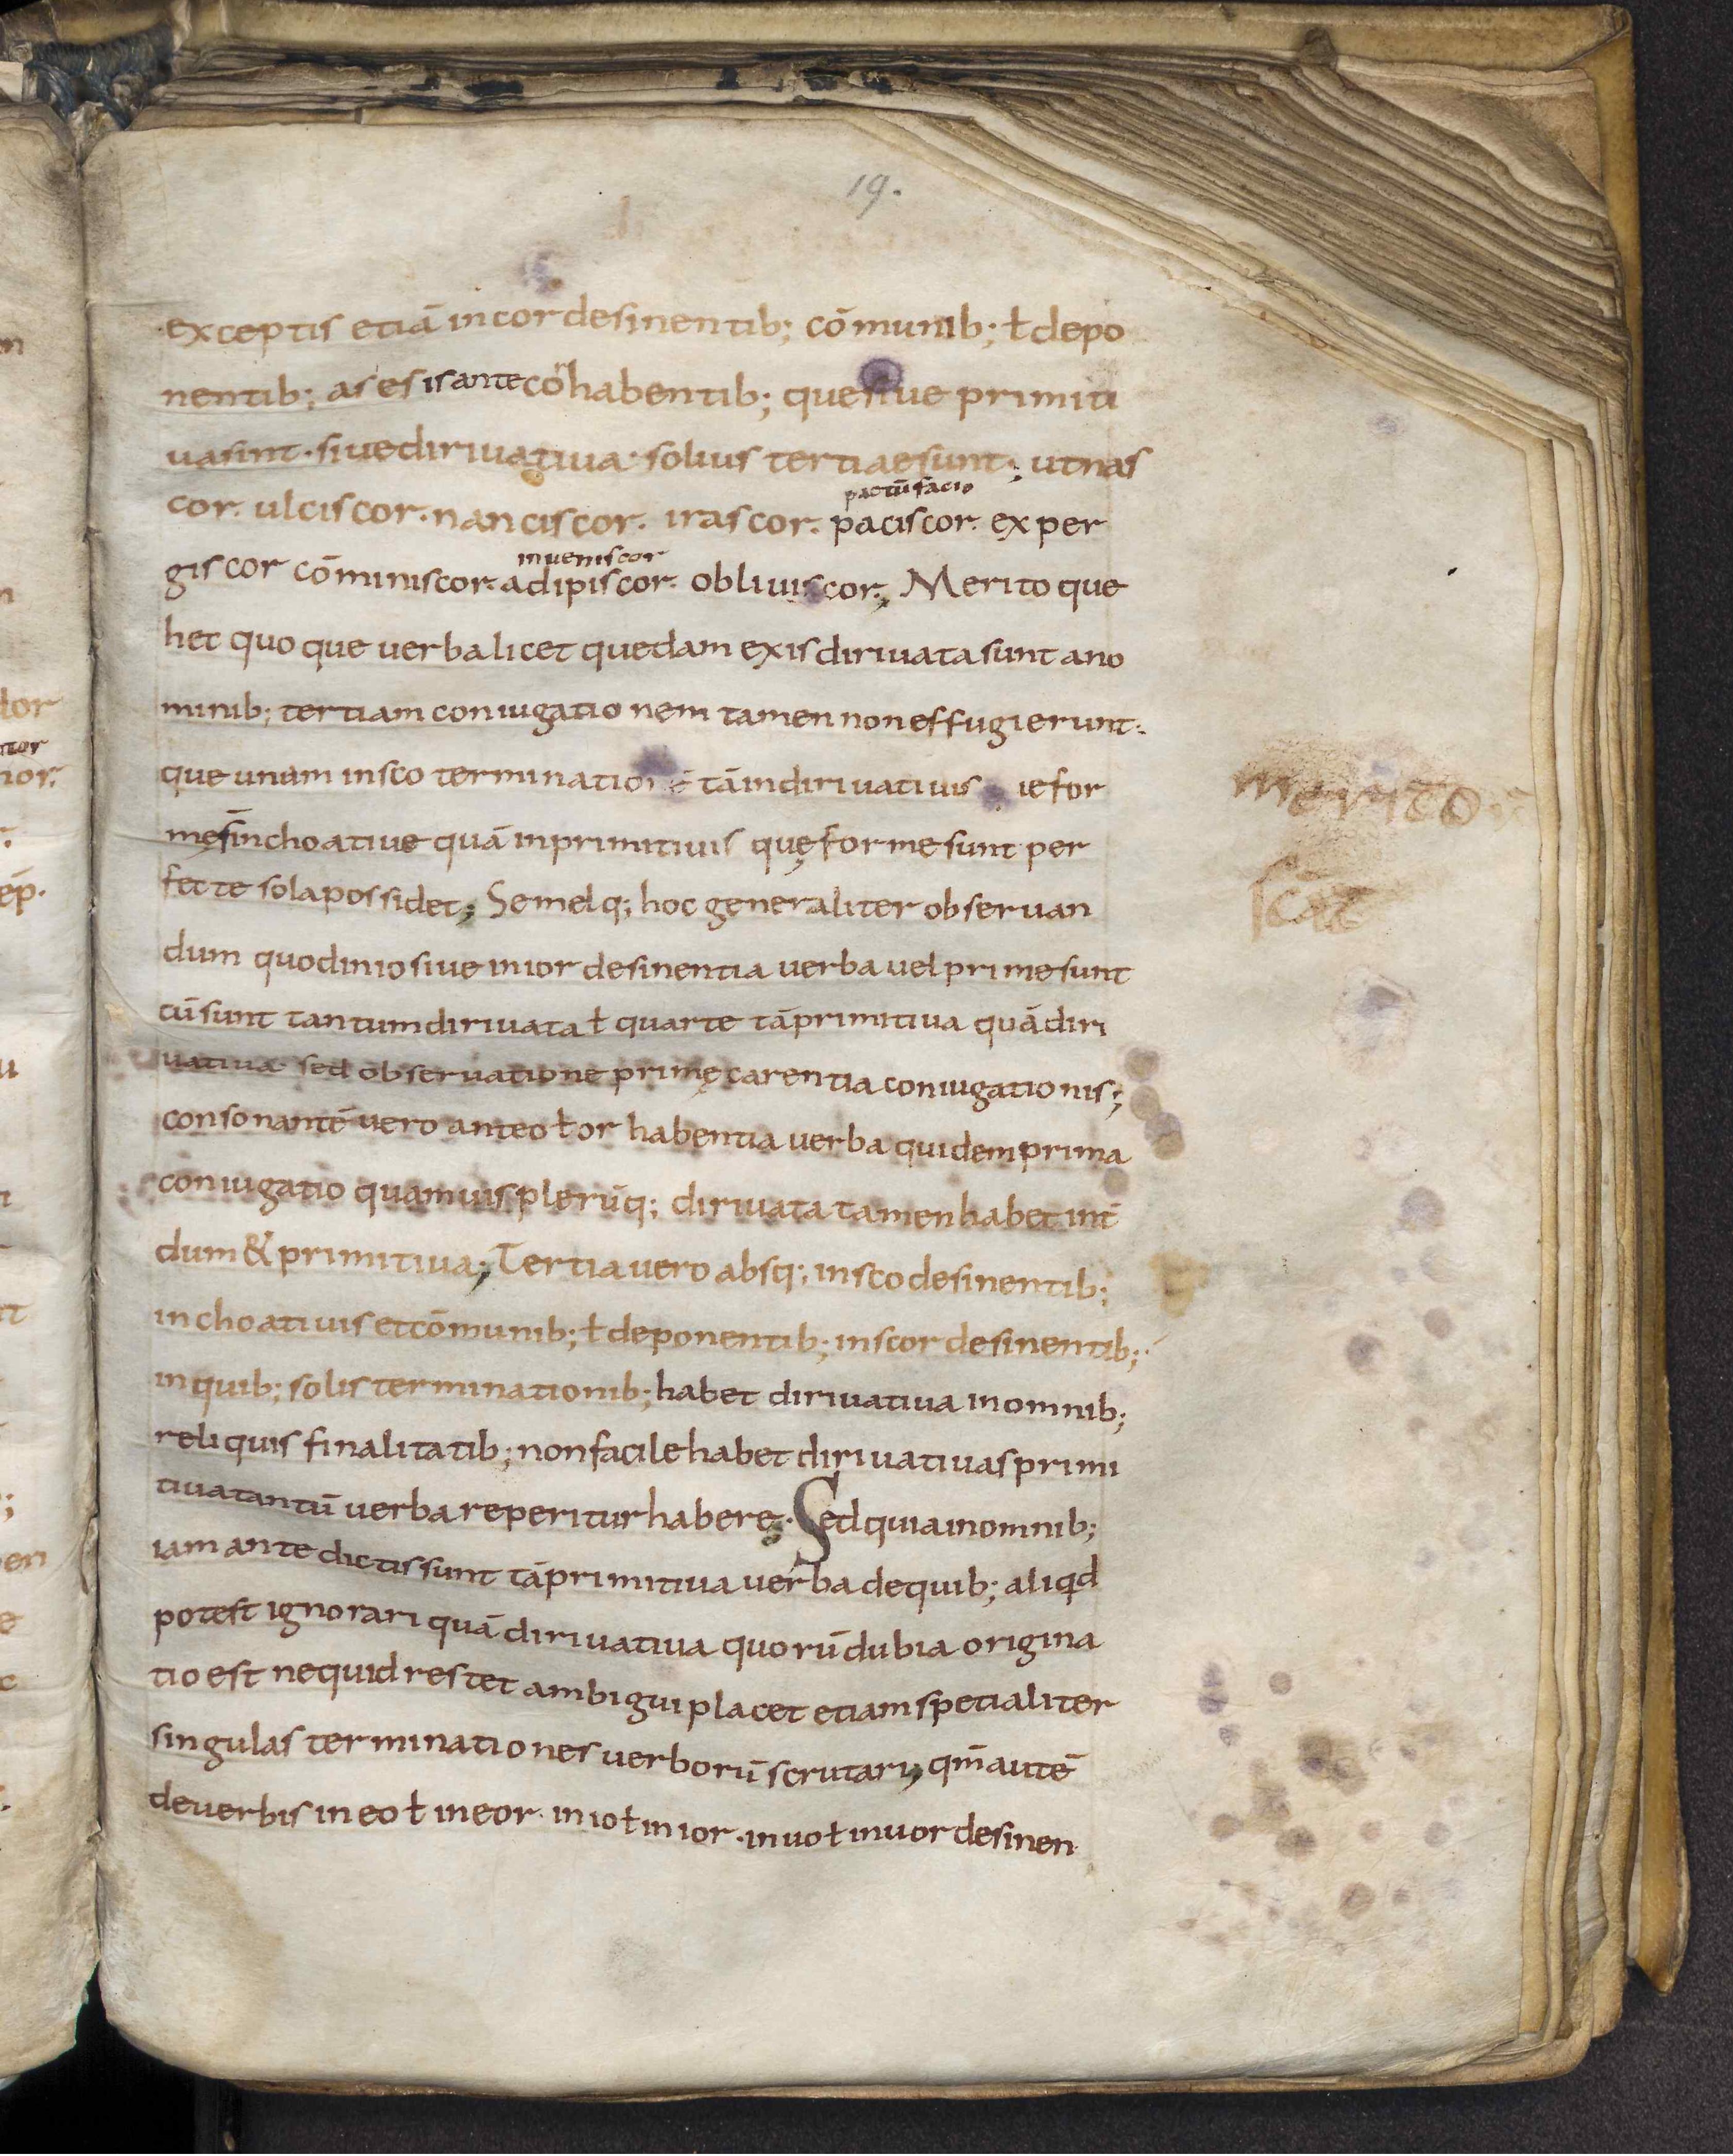 19.
exceptis etiā in cor desinentib; cōmunib; ł depo
nentib; as es is ante cor habentib; que siue primiti
ua sint · siue diriuatiua · solius tertiae sunt; ut nas
cor. ulciscor. nanciscor. irascor. paciscor. exper
pactū facio
giscor cōminiscor. adipiscor. obliuiscor; Merito que
inueniscor
hec quoque uerba licet quedam ex is diriuata sunt a no
minib; tertiam coniugationem tamen non effugierunt.
que unam in sco termination tām diriuatiuis ie for
mę inchoatiue quā in primitiuis quę forme sunt per
fecte sola possidet; Semelq; hoc generaliter obseruan
dum quod in io siue in ior desinentia uerba uel prime sunt
cū sunt tantum diriuata ł quarte tā primitiua quā diri
uatiua · sed obseruatione primę carentia coniugationis;
consonantē uero ante o ł or habentia uerba quidem prima
coniugatio quamuis plerūq; diriuata tamen habet int̄
dum & primitiua; Tertia uero absq; in sco desinentib;
inchoatiuis et cōmunib; ł deponentib; in scor desinentib;
in quib; solis terminationib; habet diriuatiua in omnib;
reliquis finalitatib; non facile habet diriuatiua s primi
tiua tantū uerba reperitur habere; Sed quia in omnib;
iam ante dictis sunt tā primitiua uerba de quib; aliqd
potest ignorari quā diriuatiua quorū dubia origina
tio est ne quid restet ambigui placet etiam spetialiter
singulas terminationes uerborū scrutari; qm̄ autē
de uerbis in eo ł in eor · in io ł in ior · in uo ł in uor desinen
merito